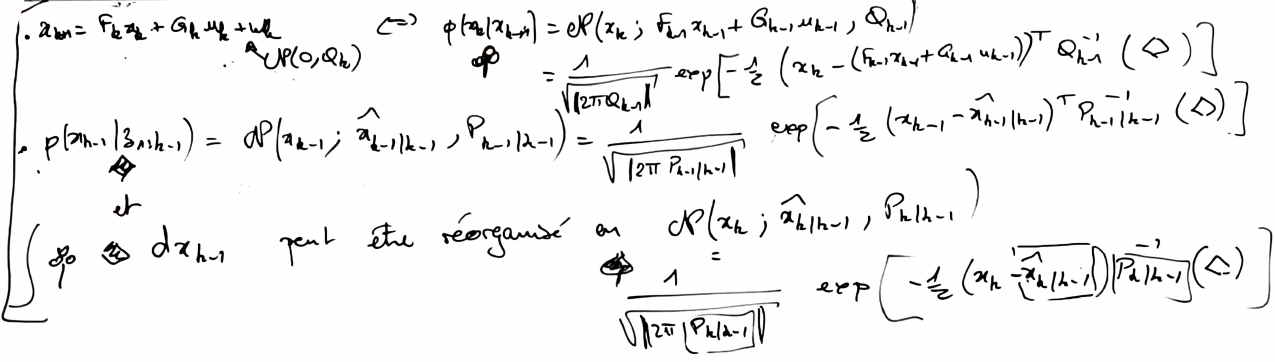 . x_{k+1} = F_k x_k + G_k u_k + w_k ⟺ p(x_k|x_{k-1}) = N(x_k ; F_{k-1} x_{k-1} + G_{k-1} u_{k-1} , Q_{k-1})
N(0, Q_k) = 1/√|2π Q_{k-1}| exp[-1/2 (x_k - (F_{k-1} x_{k-1} + G_{k-1} u_{k-1}))^T Q_{k-1}^{-1} (△)]
. p(x_{k-1}|z_{1:k-1}) = N(x_{k-1} ; x̂_{k-1|k-1} , P_{k-1|k-1}) = 1/√|2π P_{k-1|k-1}| exp[-1/2 (x_{k-1} - x̂_{k-1|k-1})^T P_{k-1|k-1}^{-1} (△)]
et
∫ dx_{k-1} peut être réorganisé en N(x_k ; x̂_{k|k-1} , P_{k|k-1})
= 1/√|2π P_{k|k-1}| exp[-1/2 (x_k - x̂_{k|k-1}) P_{k|k-1}^{-1} (△)]